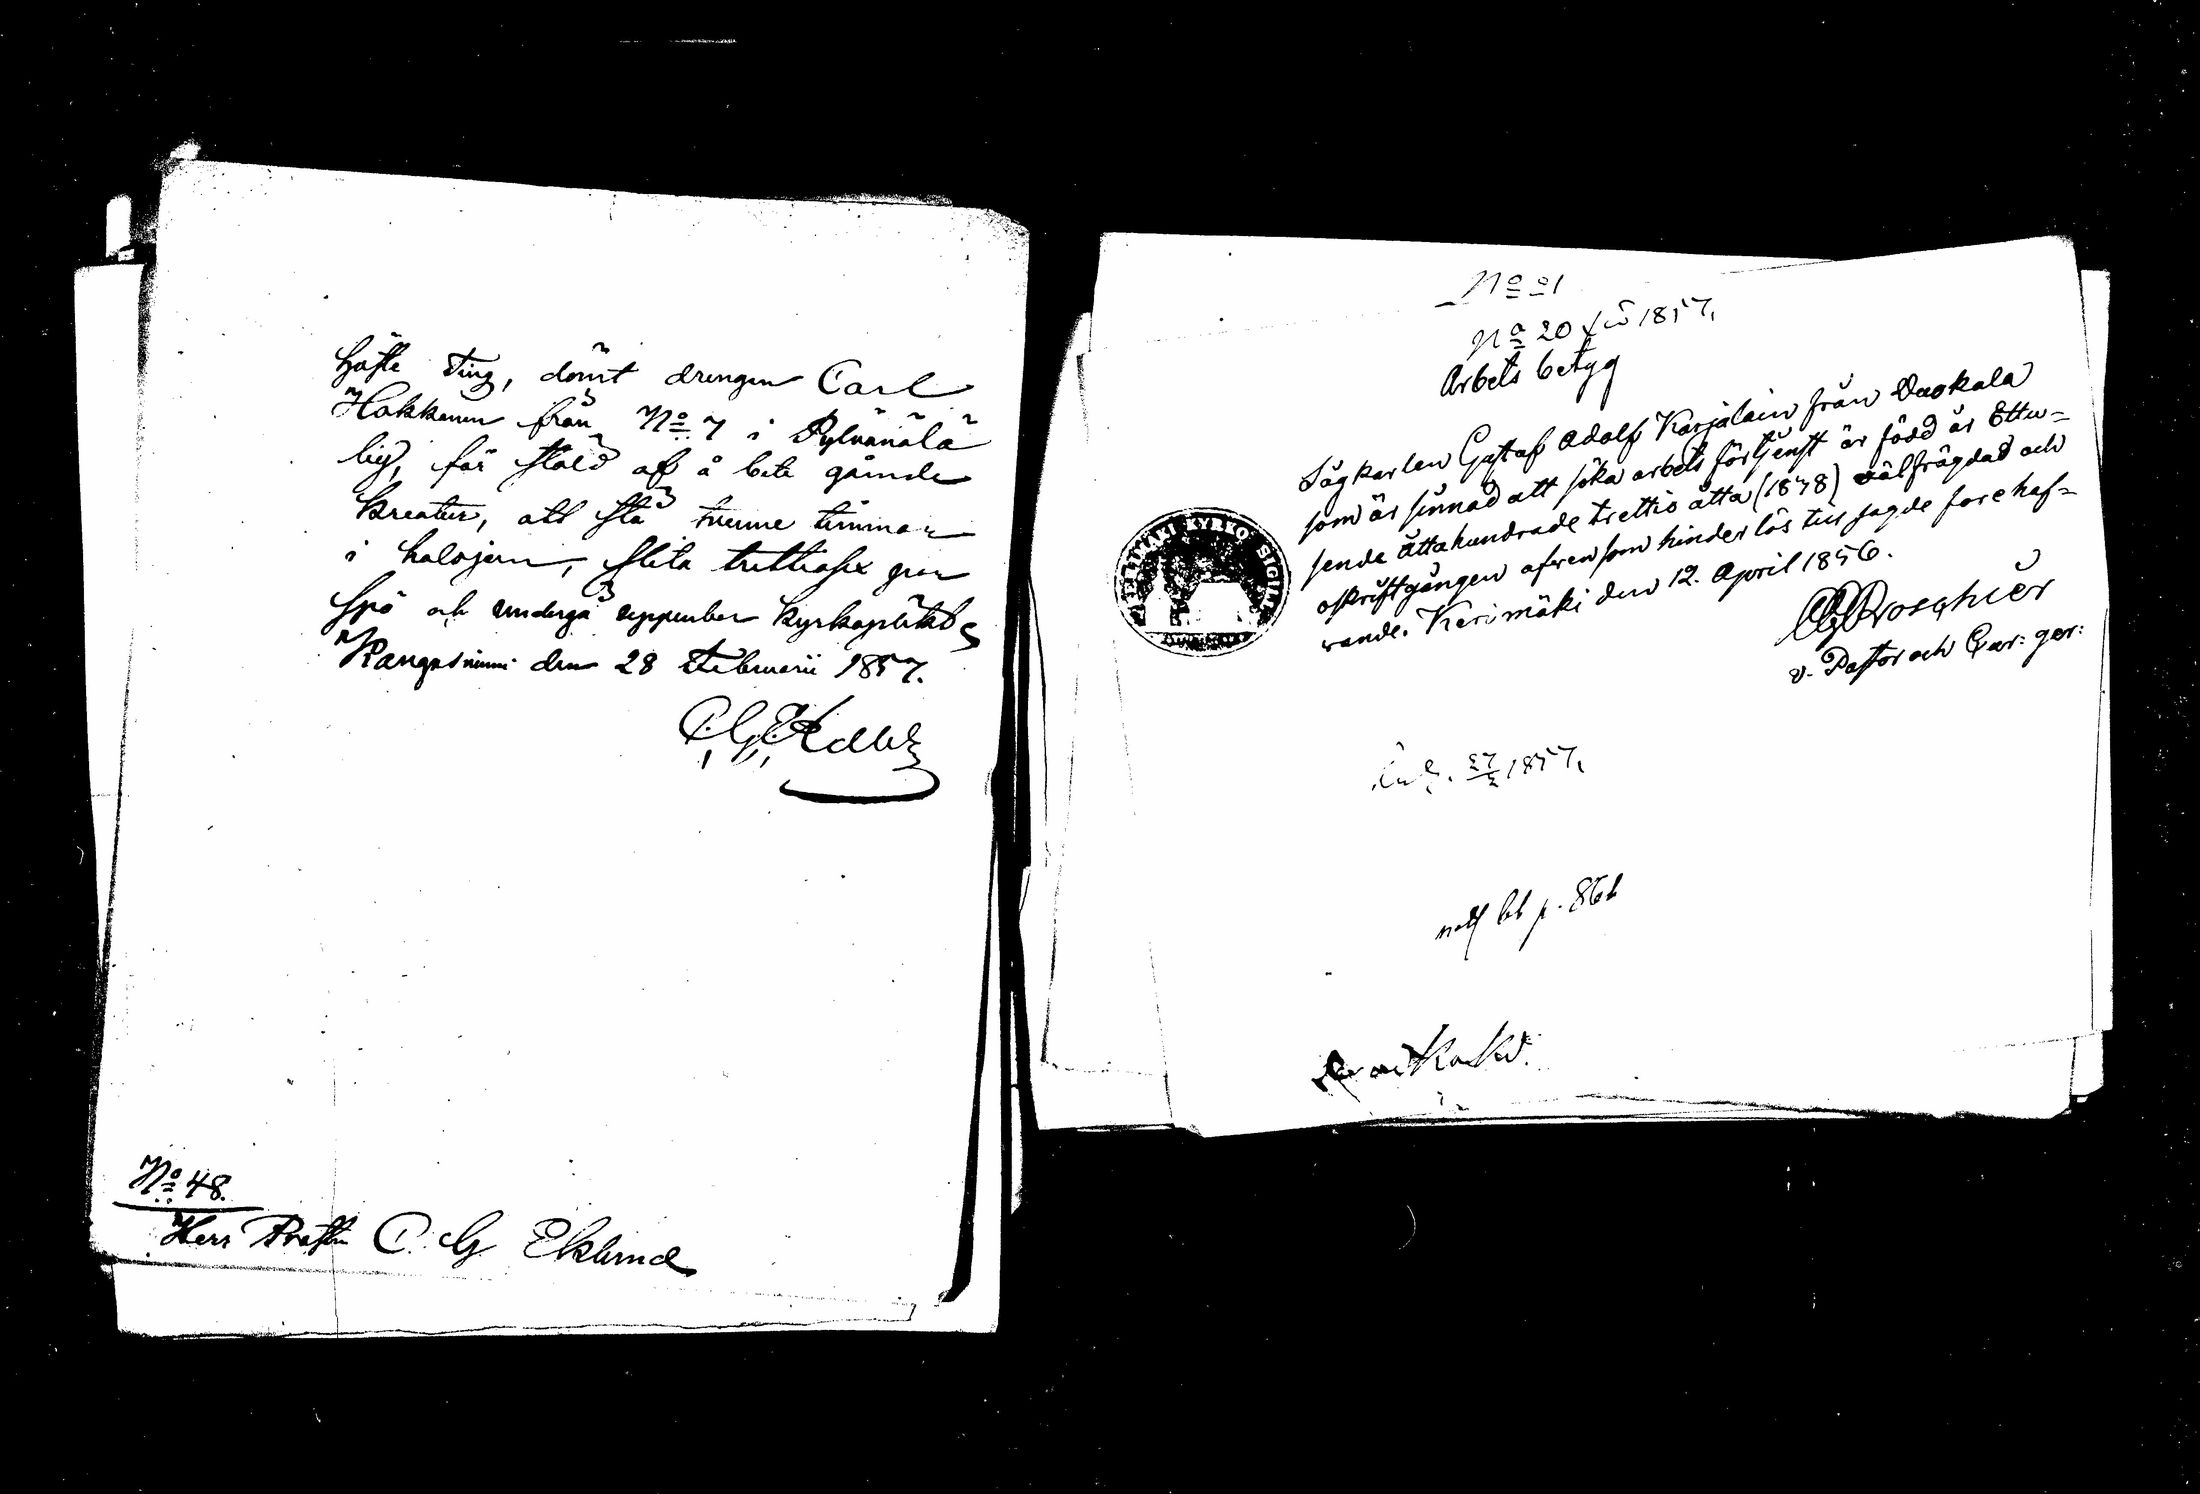 håfle Ting, dömt drengen Carl
Hakkanen från No 7 i Pylvänälä
by, för stöld af å bete gående
kreatur, att stå tvenne timmar
i halsjern, slita trettiosex par
spö och undergå uppenbar kyrkoplikt
Kangasniemi den 28 Februarii 1857.
No 48.
Herr Prosten C. G Eklund
No 21
No 20 1857.
Arbets betyg
Sågkarlen Gustaf Adolf Karjalain från Vuokala
som är sinnad att söka arbets förtjenst är född år Ettu=
sende Åttahundrade trettio åtta (1838) välfrägdad och
oskriftgången afven som hinderlös till sagde forehaf=
vande. Kerimäki den 12. April 1856.
Broschier
v. Pastor och Cur: ger:
KYRKO SIGILL
1857.